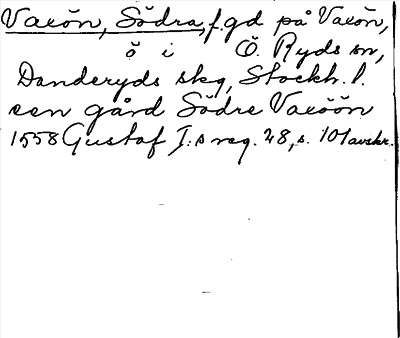 Vaxön, Södra, f.gd på Vaxön,
ö i Ö. Ryds sn,
Danderyds skg, Stockh. l.
een gård Södre Vaxöön
1558 Gustaf I:s reg. 28, s. 101 avskr.